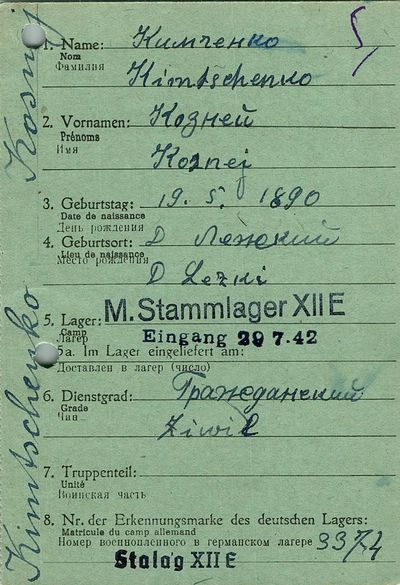 1. Name: Кимченко
Nom
Фамилия
Kimtschenko
2. Vornamen: Козней
Prénoms
Имя
Kosnej
3. Geburtstag: 19. 5. 1890
Date de naissance
День рождения
4. Geburtsort: Д
Lieu de naissance
Место рождения
D
5. Lager: M. Stammlager XII E
Camp
Лагер
Eingang 29 7.42
5a. Im Lager eingeliefert am:
Доставлен в лагер (число)
6. Dienstgrad: Гражданский
Grade
Чин
Ziwil
7. Truppenteil:
Unité
Воинская часть
8. Nr. der Erkennungsmarke des deutschen Lagers:
Matricule du camp allemand
Номер военнопленного в германском лагере 3374
Stalag XII E
Kimtschenko Kosnej